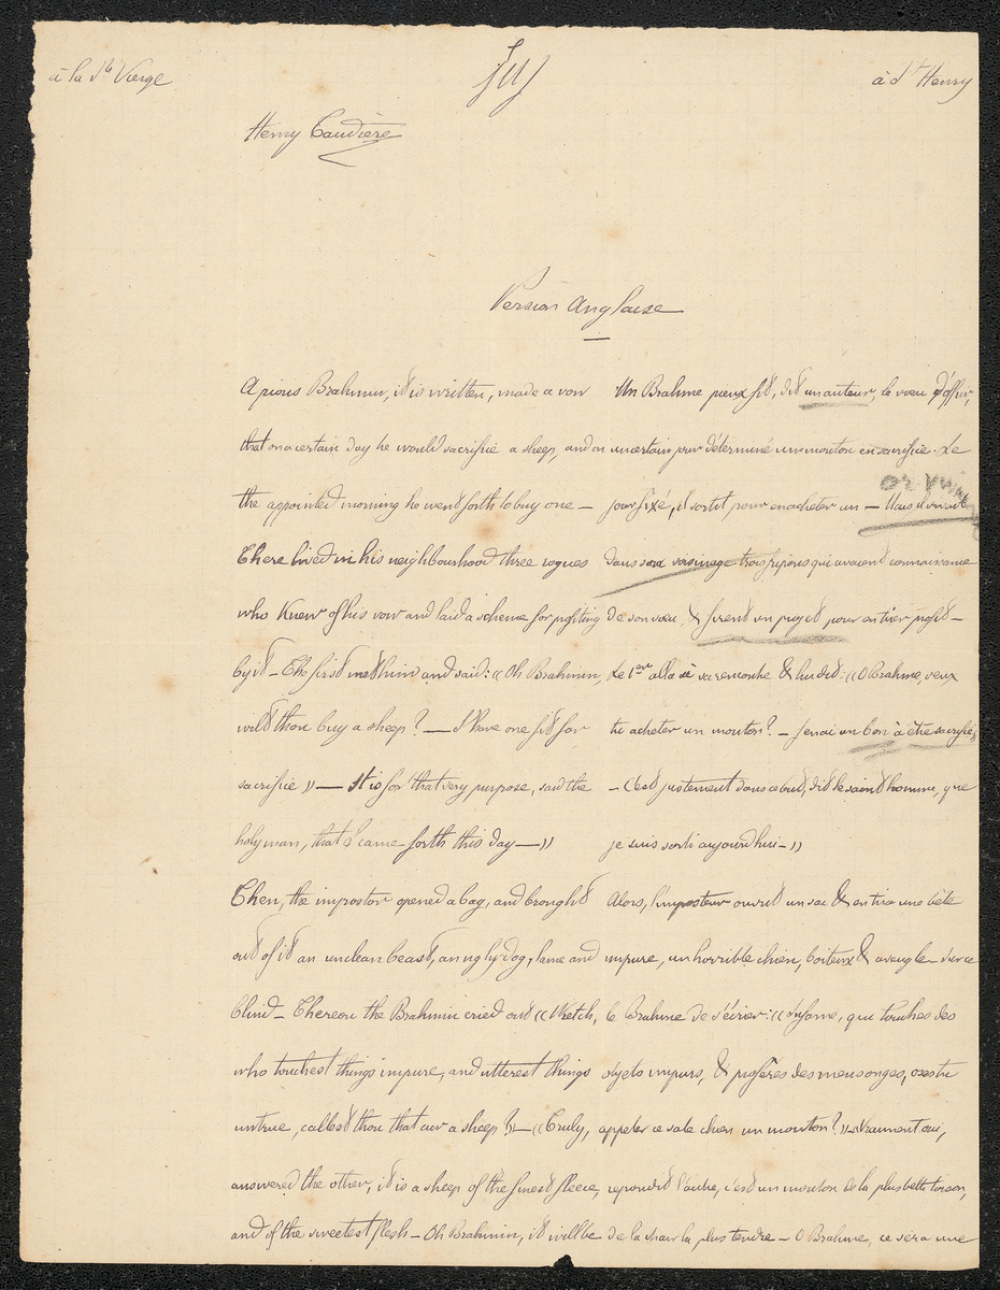 à la Ste Vierge
à St Henry
Henry Caudière
Version Anglaise
A pious Brahmin, it is written, made a vow
that on a certain day he would sacrifie a sheep, and on
the appointed morning he went forth to buy one –
There lived in his neighbourhood three rogues
who Knew of his vow and laid a scheme for profiting
by it – The first met him and said: « Oh Brahmin,
wilt thou buy a sheep? — I have one fit for
sacrifie » — It is for that very purpose, said the
holy man, that I came forth this day — »
Then, the impostor opened a bag, and brought
out of it an unclean beast, an ugly dog, lame and
blind – Thereon the Brahmin cried out « Wretch,
who touchest things impure, and utterest things
untrue, callest thou that cur a sheep? » — « Truly,
answered the other, it is a sheep of the finest fleece,
and of the sweetest flesh – Oh Brahmin, it will be
Un Brahme pieux fit, dit un auteur, le vœu d'offrir,
un certain jour déterminé un mouton en sacrifice. Le
jour fixé, il sortit pour en acheter un – Mais il vivait
or vivaient
dans son voisinage trois fripons qui avaient connaissance
de son vœu & firent un projet pour en tirer profit –
Le 1er alla à sa rencontre & lui dit: « O Brahme, veux
tu acheter un mouton? – J'en ai un bon à être sacrifié,
– C'est justement dans ce but, dit le saint homme, que
je suis sorti aujourd'hui – »
Alors, l'imposteur ouvrit un sac & en tira une bête
impure, un horrible chien, boiteux & aveugle – Sur ce
le Brahme de s'écrier: « Infame, qui touches des
objets impurs, & profères des mensonges, oses tu
appeler ce sale chien un mouton? » – Vraiment oui,
répondit l'autre, c'est un mouton de la plus belle toison,
de la chair la plus tendre – O Brahme, ce sera une